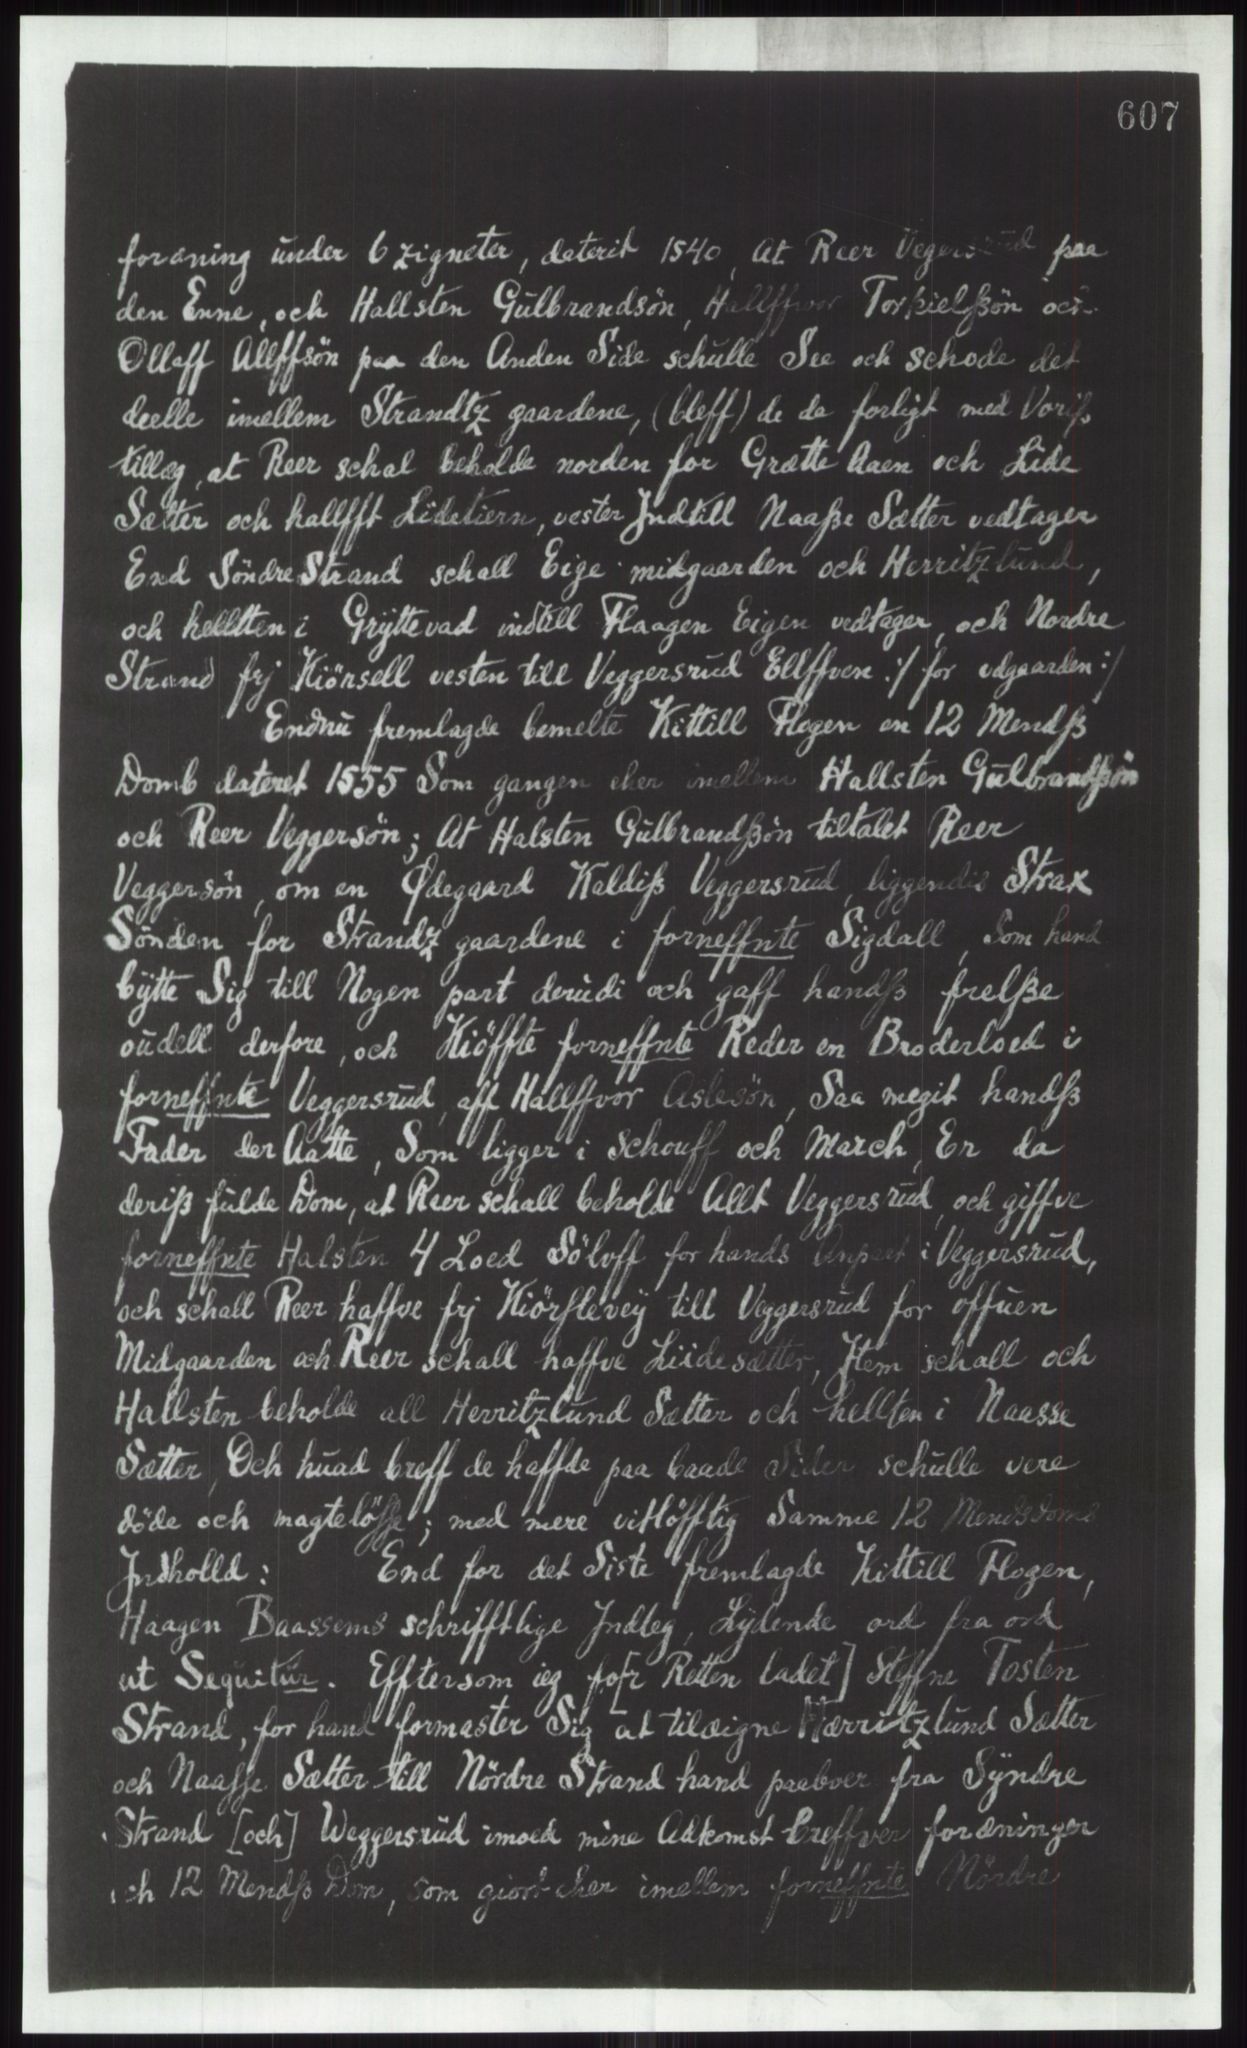 607
foræning under 6 zigneter, daterit 1540, At Reer Vegersrud paa
den Enne, och Hallsten Gulbrandsön, Hallffvor Torkielßön och
Ollaff Allffsön paa den Anden Side schulle See och schode det
deelle imellem Strandtz gaardene, (bleff) de da forligt med Voriß
tilleg, at Reer schal beholde norden for Grætte Aaen och Lide
Sætter och hallfft Lidetiern, vester Jndtill Naaße Sætter vedtager
End Söndre Strand schall Eige midgaarden och Herritzlund,
och helltten i Grÿttevad indtill Flaagen Eigen vedtager, och Nordre
Strand frj Kiörsell vesten till Veggersrud Ellffven :/ for udgaarden :/
Endnu fremlagde bemelte Kittill Flogen en 12 Mendß
Domb dateret 1555 Som gangen eher imellem Hallsten Gulbrandßön
och Reer Veggersön; At Halsten Gulbrandßön tiltalet Reer
Veggersön, om en Ødegaard Kaldiß Veggersrud, liggendis Strax
Sönden for Strandz gaardene i forneffnte Sigdall, Som hand
bÿtte Sig till Nogen part derudi och gaff handß frelße
oudell derfore, och Kiöffte forneffnte Reder en Broderloed i
forneffnte Veggersrud, aff Hallffvor Aslesön, Saa megit handß
Fader der Aatte, Som ligger i schouff och March, Er da
deriß fulde Dom, at Reer schall beholde Allt Veggersrud, och giffve
forneffnte Halsten 4 Loed Sölvff for hands Anpart i Veggersrud,
och schall Reer haffve frj Kiörslevey till Veggersrud for offuen
Midgaarden och Reer schall haffve Liidesætter, Jtem schall och
Hallsten beholde all Herritzlund Sætter och hellten i Naasse
Sætter, Och huad breff de haffde paa baade Sider schulle vere
döde och magtelösse; med mere vitlöfftig Samme 12 Mendsdoms
Jndholld: End for det Siste fremlagde Kittill Flogen,
Haagen Baassems schrifftlige Jndleg, Lÿdende ord fra ord
ut Sequitur. Efftersom ieg fo[r Retten ladet] Steffne Tosten
Strand, for hand formaster Sig at tilæigne Hærritzlund Sætter
och Naasse Sætter till Nördre Strand hand paaboer fra Sÿndre
Strand [och] Weggersrud imoed mine Adkomst breffver foræninger
och 12 Mendß Dom, som giort eher imellem forneffnte Nördre